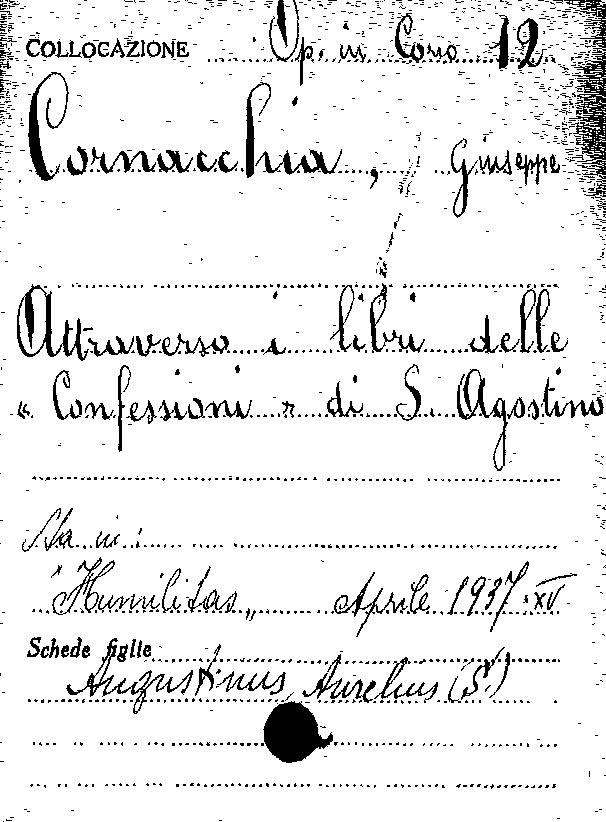 COLLOCAZIONE Op. in Cons 12
Cornacchia, Giuseppe
Attraverso i libri delle
« Confessioni » di S. Agostino
Sta in:
"Humilitas„ Aprile 1937-XV
Schede figlie
Augustinus, Aurelius (S.)